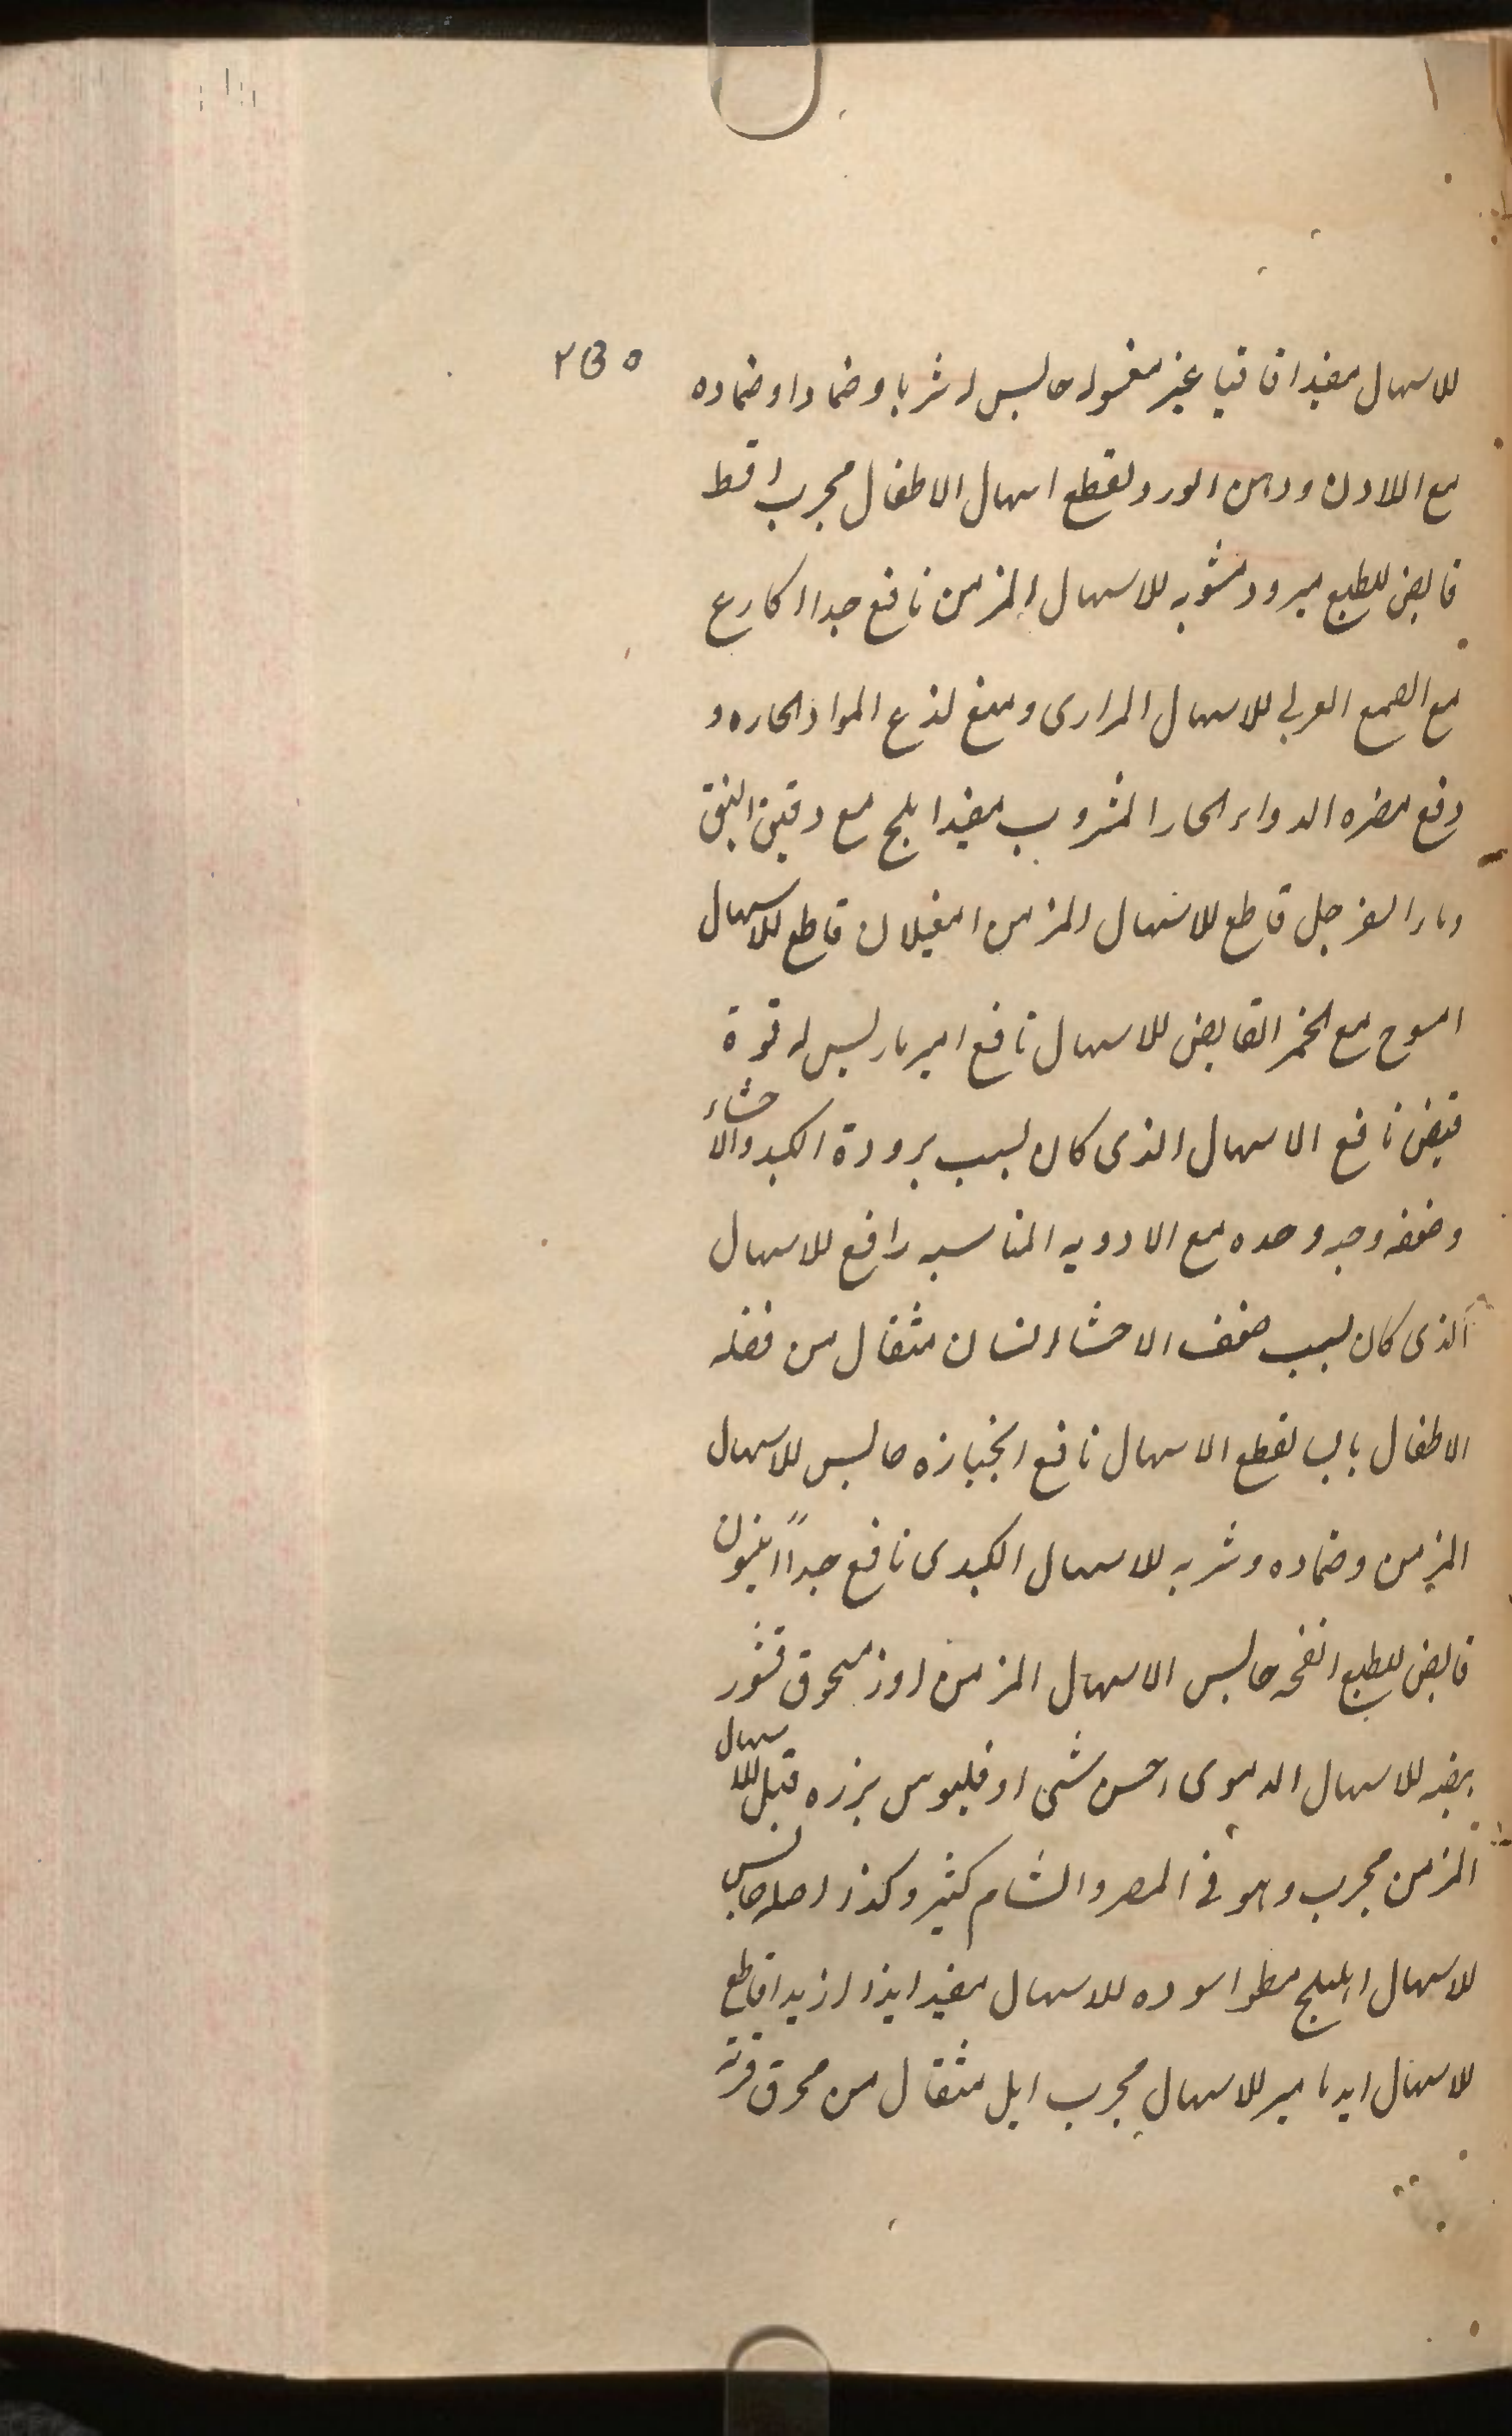 ۲۳۵
للاسهال مفید اقاقیا غیر مغسوله حابس له شربا وضمادا وضماده
مع اللادن ودهن الورد لقطع اسهال الاطفال مجرب اقط
قابض للطبع مبرود مشویه للاسهال المزمن نافع جدا اکارع
مع الصمغ العربی للاسهال المراری ومنع لذع المواد الحاره و
دفع مضره الدواء الحار المشروب مفید املج مع دقیق النبق
وماء السفرجل قاطع للاسهال المزمن امغیلان قاطع للاسهال
امسوح مع الخمر القابض للاسهال نافع امیرباریس له قوة
قبض نافع الاسهال الذی کان لسبب برودة الکبد والاحشاء
وضعفه وحبه وحده مع الادویه المناسبه رافع للاسهال
الذی کان لسبب ضعف الاحشاء انسان مثقال من فضله
الاطفال بالب لقطع الاسهال نافع انجباره حابس للاسهال
المزمن وضماده وشربه للاسهال الکبدی نافع جداً انیسون
قابض للطبع انفحه حابس الاسهال المزمن اوز مسحوق قشور
بیضه للاسهال الدموی احسن شی اوفلیوس بزره قبل للاسهال
المزمن مجرب وهو فی المصر والشام کثیر وکذا اصله حابس
للاسهال اهلیلج مطو اسوده للاسهال مفید ایذا ارزیدا قاطع
للاسهال ایدیامیر للاسهال مجرب ایل مثقال من محرق قرنه